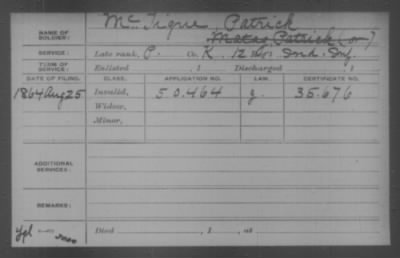 NAME OF SOLDIER: McTigue, Patrick
Patrick (or)
SERVICE: Late rank, P. Co. K, 12 Ind. Inf.
TERM OF SERVICE: Enlisted , 1 Discharged , 1
DATE OF FILING. CLASS. APPLICATION NO. LAW. CERTIFICATE NO.
1864 Aug 25 Invalid, 50.464 35.676
Widow,
Minor,
ADDITIONAL SERVICES:
REMARKS:
Died , 1 , at